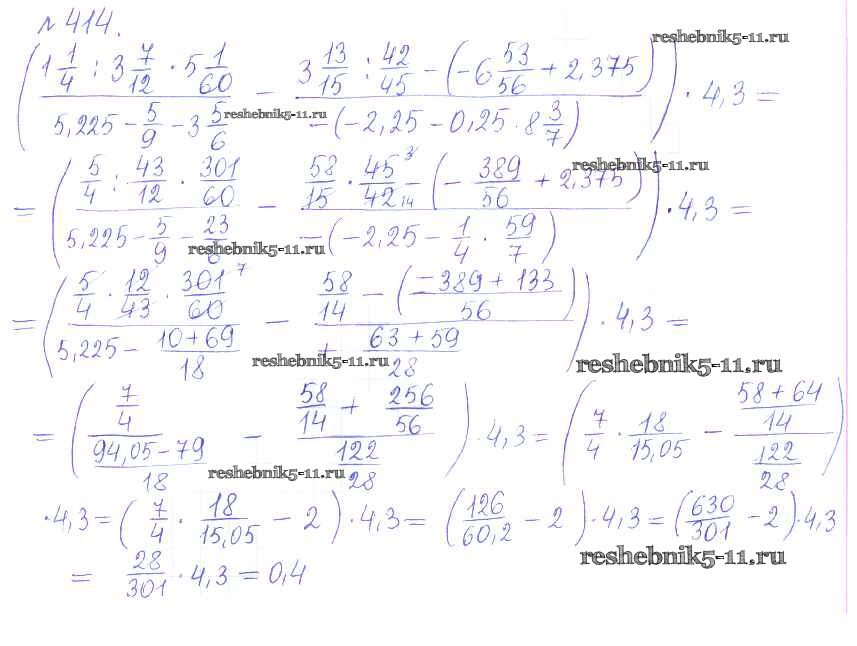 № 414.
reshebnik5-11.ru
( (1 1/4 : 3 7/12 · 5 1/60) / (5,225 - 5/9 - 3 5/6) - (3 13/15 : 42/45 - (-6 53/56 + 2,375)) / (-(-2,25 - 0,25 · 8 3/7)) ) · 4,3 =
reshebnik5-11.ru
reshebnik5-11.ru
= ( (5/4 : 43/12 · 301/60) / (5,225 - 5/9 - 23/6) - (58/15 · 45³/42₁₄ - (-389/56 + 2,375)) / (-(-2,25 - 1/4 · 59/7)) ) · 4,3 =
reshebnik5-11.ru
= ( (5/4 · 12/43 · 301⁷/60) / (5,225 - (10+69)/18) - (58/14 - ((-389+133)/56)) / (+ (63+59)/28) ) · 4,3 =
reshebnik5-11.ru
reshebnik5-11.ru
= ( (7/4) / ((94,05-79)/18) - (58/14 + 256/56) / (122/28) ) · 4,3 = ( 7/4 · 18/15,05 - ((58+64)/14) / (122/28) )
reshebnik5-11.ru
· 4,3 = ( 7/4 · 18/15,05 - 2 ) · 4,3 = ( 126/60,2 - 2 ) · 4,3 = ( 630/301 - 2 ) · 4,3
reshebnik5-11.ru
= 28/301 · 4,3 = 0,4